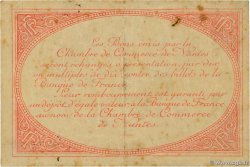 Les Bons émis par la
Chambre de Commerce de Nantes
seront échangés à présentation, par dix
ou multiples de dix contre des billets de la
Banque de France.
Leur remboursement est garanti par
un dépôt d'égale valeur à la Banque de France
au nom de la Chambre de Commerce
de Nantes.